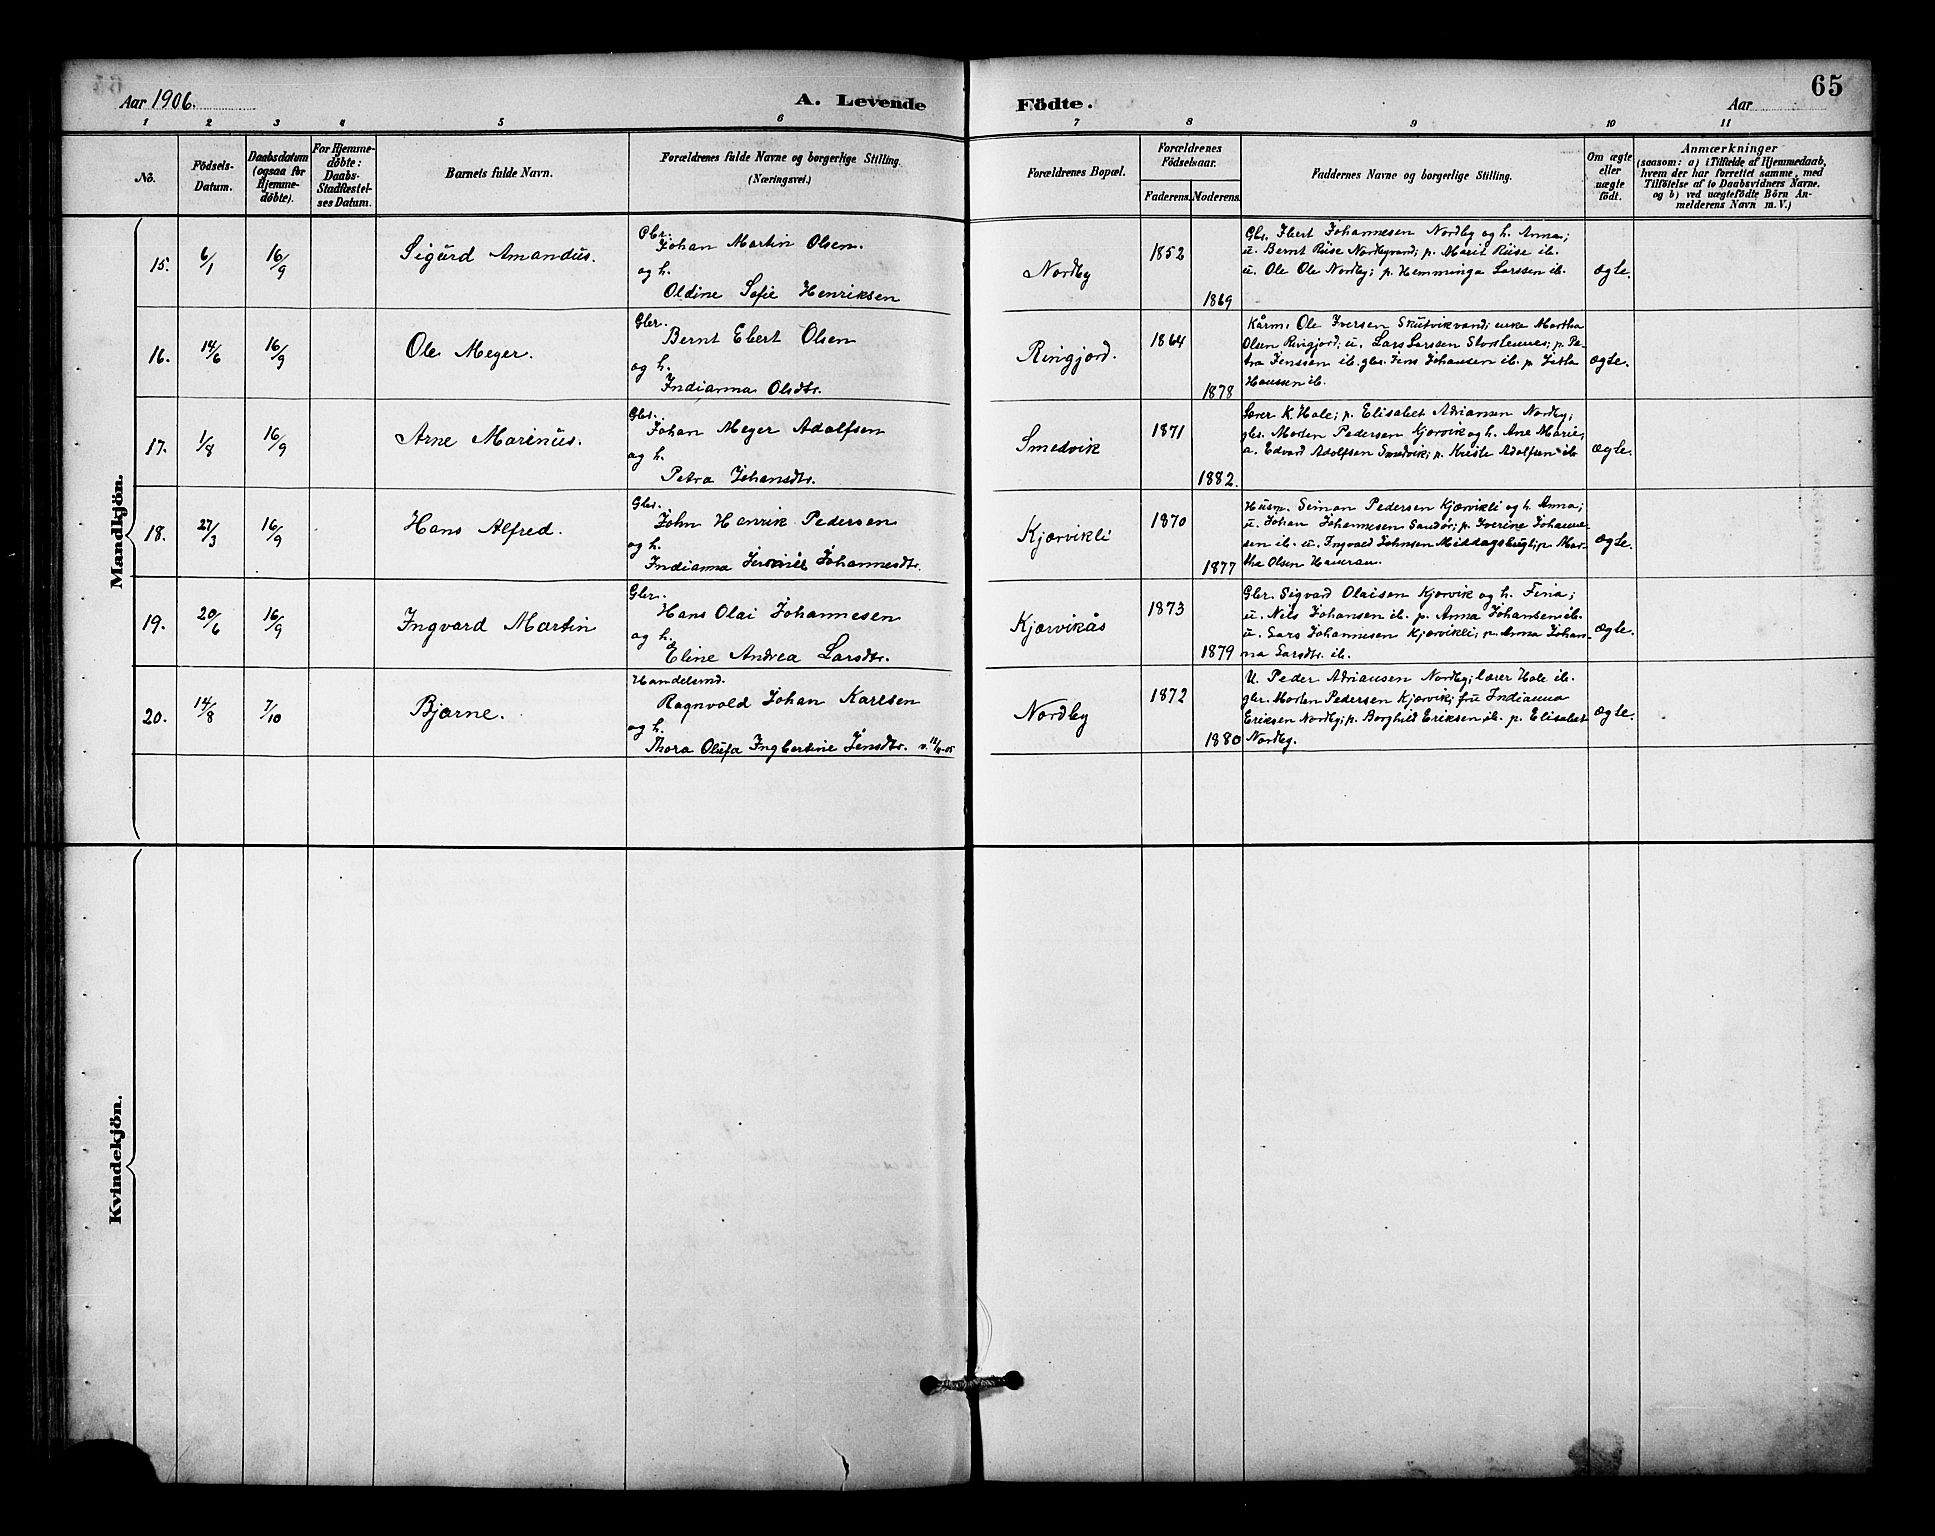 65
Aar 1906.
A. Levende Födte.
Aar
1 2 3 4 5 6 7 8 9 10 11
No.
Födsels-
Datum.
Daabsdatum
(ogsaa for
Hjemme-
döbte).
For Hjemme-
döbte:
Daabs-
Stadfæstel-
ses Datum.
Barnets fulde Navn.
Forældrenes fulde Navne og borgerlige Stilling.
(Næringsvei.)
Forældrenes Bopæl.
Forældrenes
Födselsaar.
Faderens.
Moderens.
Faddernes Navne og borgerlige Stilling.
Om ægte
eller
uægte
födt.
Anmærkninger
(saasom: a) i Tilfælde af Hjemmedaab,
hvem der har forrettet samme, med
Tilföielse af to Daabsvidners Navne,
og b) ved uægtefödte Börn An-
melderens Navn m. V.)
Mandkjön.
15.
6/1
16/9
Sigurd Amandus.
Gbr.
Johan Martin Olsen.
og h.
Oldine Sofie Henriksen
Nordby
1852
1869
Gbr. Ebert Johannesen Nordby og h. Anna;
u. Bernt Riise Nordbyvand; p. Marit Riise ib.
u. Ole Ole Nordby; p. Hemminga Larssen ib.
ægte.
16.
14/6
16/9
Ole Meyer.
Gbr.
Bernt Ebert Olsen
og h.
Indianna Olsdtr.
Ringjord.
1864
1878
Kårm. Ole Iversen Skutvikvand; enke Martha
Olsen Ringjord; u. Lars Larssen Storstennes; p. Pe-
tra Jenssen ib. gbr. Jens Johansen ib. p.
Hanssen ib.
ægte.
17.
1/8
16/9
Arne Marinus.
Gbr.
Johan Meyer Adolfsen
og h.
Petra Johansdtr.
Smedvik
1871
1882.
Lærer K. Hole; p. Elisabet Adriansen Nordby;
gbr. Morten Pedersen Kjørvik og h. Ane Marie;
u. Edvard Adolfsen Smedvik; p. Kriste Adolfsen ib
ægte.
18.
27/3
16/9
Hans Alfred.
Gbr.
John Henrik Pedersen
og h.
Indianna Johannesdtr.
Kjærvikli
1870
1877
Husm. Simon Pedersen Kjærvikli og h. Anna;
u. Johan Johannesen Sandør; p. Iverine Johanne-
sen ib. u. Ingvald Johnsen Middagsbugt; p. Mar-
tha Olsen Haueran.
ægte.
19.
20/6
16/9
Ingvard Martin
Gbr.
Hans Olai Johannesen
og h.
Eline Andrea Larsdtr.
Kjærvikås
1873
1879
Gbr. Sigvard Olaisen Kjørvik og h. Fina;
u. Nils Johansen ib. p. Anna Johansen ib.
u. Lars Johannesen Kjærvikli; p. Anna Johan-
na Larsdtr. ib.
ægte.
20.
14/8
7/10
Bjarne.
Handelsmd.
Ragnvald Johan Karlsen
og h.
Thora Olufa Ingbertine Jensdtr.
Nordby
1872
1880
U. Peder Adriansen Nordby; lærer Hole ib.
gbr. Morten Pedersen Kjørvik; fru Indianna
Eriksen Nordby; p. Borghild Eriksen ib. p. Elisabet
Nordby.
ægte.
Kvindekjön.